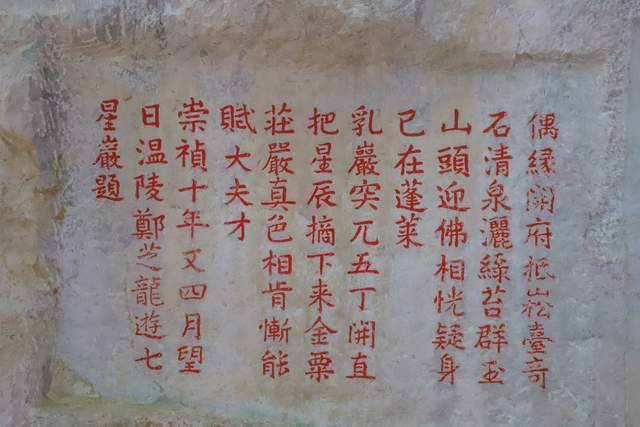 偶緣開府抵崧臺奇
石清泉灑綠苔群玉
山頭迎佛相恍疑身
已在蓬萊
乳巖突兀五丁開直
把星辰摘下来金粟
莊嚴真色相肯慚能
賦大夫才
崇禎十年又四月望
日温陵鄭芝龍遊七
星巖題